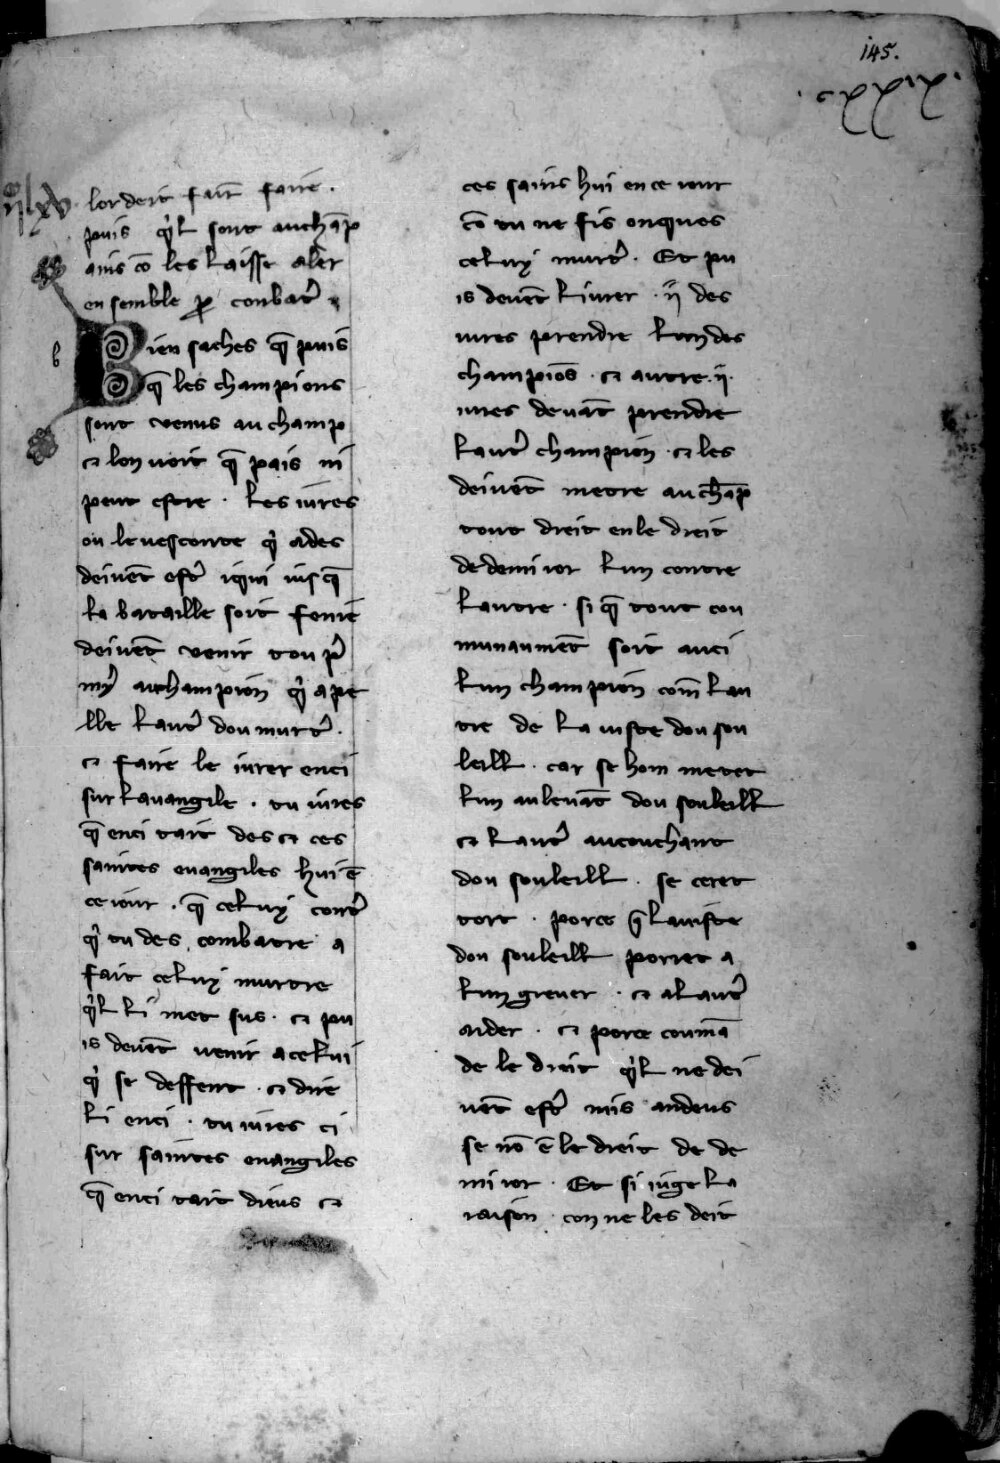 145.
.cxxix.
.iiᶜlxv.
lor deit fait faire.
puis q̓l sont auchāp
ains cō les laisse aler
en semble ꝑ conbatr̓
b
Bien saches q̄ puis
q̄ les champions
sont venus au champ
⁊ lon voit q̄ pais ni
peut estre . les iures
ou le vesconte q̓ ades
deiuēt estr̓ iqui iusq̄
la bataille soit fenie
deiuēt venir tou pr̓
my̓ au champion q̓ ape
lle lautr̓ dou murtr̓ .
⁊ faire le iurer enci
sur lauangile . tu iures
q̄ enci tait des ⁊ ces
saintes euangiles hui ē
ce iour . q̄ celuy contr̓
q̓ tu des combatre a
fait celuy murtre
q̓l li met sus . ⁊ pu
is deuēt venir a celui
q̓ se deffent . ⁊ dire
li enci . tu iures ci
sur saintes euangiles
q̄ enci tait dieus ⁊
ces sains hui en ce iour
cō tu ne fis onques
celuy murtr̓ . Et pu
is deuēt li iurer .ii. des
iures prendre lun des
champiōs . ⁊ autre .ii.
iures deuāt prendre
lautr̓ champion . ⁊ les
deiuēt metre au chāp
tout dreit en le dreit
de demi ior lun contre
lautre . si q̄ tout cou
munaumēt soit auci
lun champion com̄ lau
tre de la uiste dou sou
leill . car se hom metet
lun au leuāt dou souleill
⁊ lautr̓ au couchant
dou souleill . se ceret
tort . porce q̄ la uiste
dou souleill porret a
lun greuer . ⁊ a lautr̓
aider . ⁊ porce coumā
de le dreit q̓l ne dei
uēt estr̓ mis andeus
se nō ē le dreit de de
mi ior . Et si iuge la
raison con ne les deit